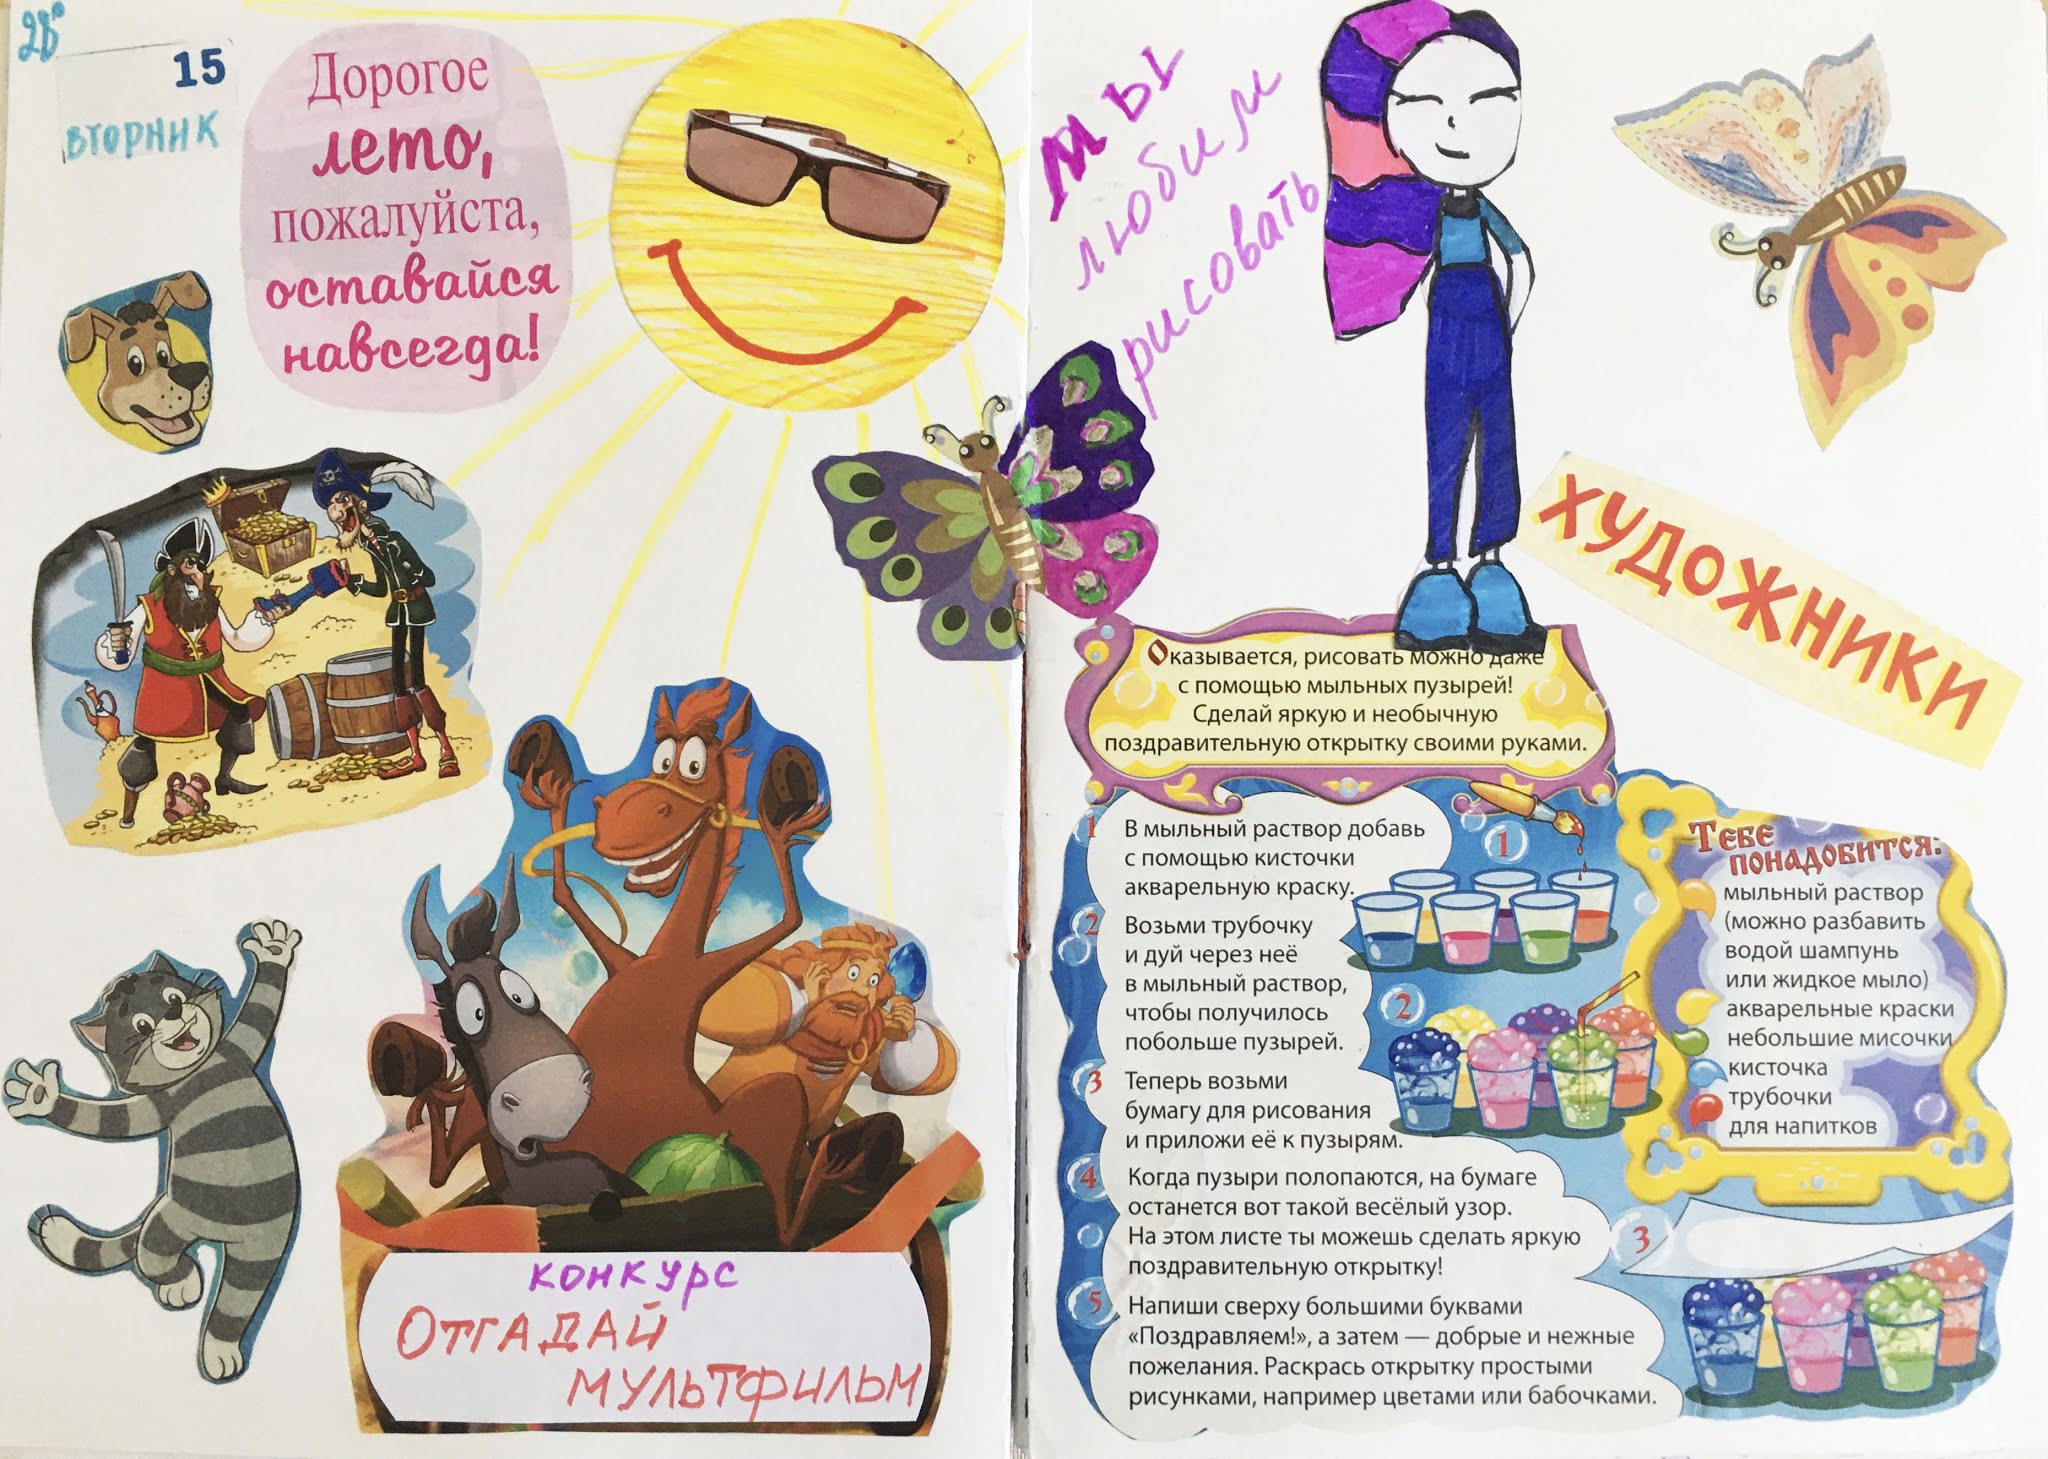 28°
15
ВТОРНИК
Дорогое
лето,
пожалуйста,
оставайся
навсегда!
КОНКУРС
ОТГАДАЙ
МУЛЬТФИЛЬМ
мы
любим
рисовать
ХУДОЖНИКИ
Оказывается, рисовать можно даже
с помощью мыльных пузырей!
Сделай яркую и необычную
поздравительную открытку своими руками.
1 В мыльный раствор добавь
с помощью кисточки
акварельную краску.
2 Возьми трубочку
и дуй через неё
в мыльный раствор,
чтобы получилось
побольше пузырей.
3 Теперь возьми
бумагу для рисования
и приложи её к пузырям.
4 Когда пузыри полопаются, на бумаге
останется вот такой весёлый узор.
На этом листе ты можешь сделать яркую
поздравительную открытку!
5 Напиши сверху большими буквами
«Поздравляем!», а затем — добрые и нежные
пожелания. Раскрась открытку простыми
рисунками, например цветами или бабочками.
1
2
3
Тебе
понадобится:
мыльный раствор
(можно разбавить
водой шампунь
или жидкое мыло)
акварельные краски
небольшие мисочки
кисточка
трубочки
для напитков